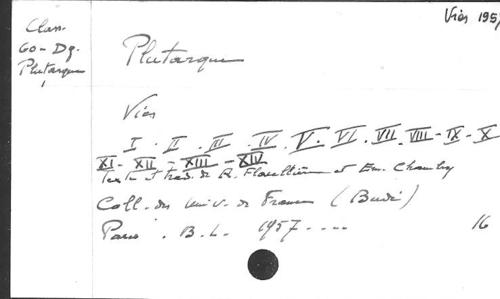 Vies 1957
Class.
60 - Dg.
Plutarque
Plutarque
Vies
I . II . III . IV . V . VI . VII . VIII - IX - X
XI - XII - XIII - XIV
Texte et trad. de R. Flacelière et Em. Chambry
Coll. des Univ. de France (Budé)
Paris . B.L. 1957 ....
16